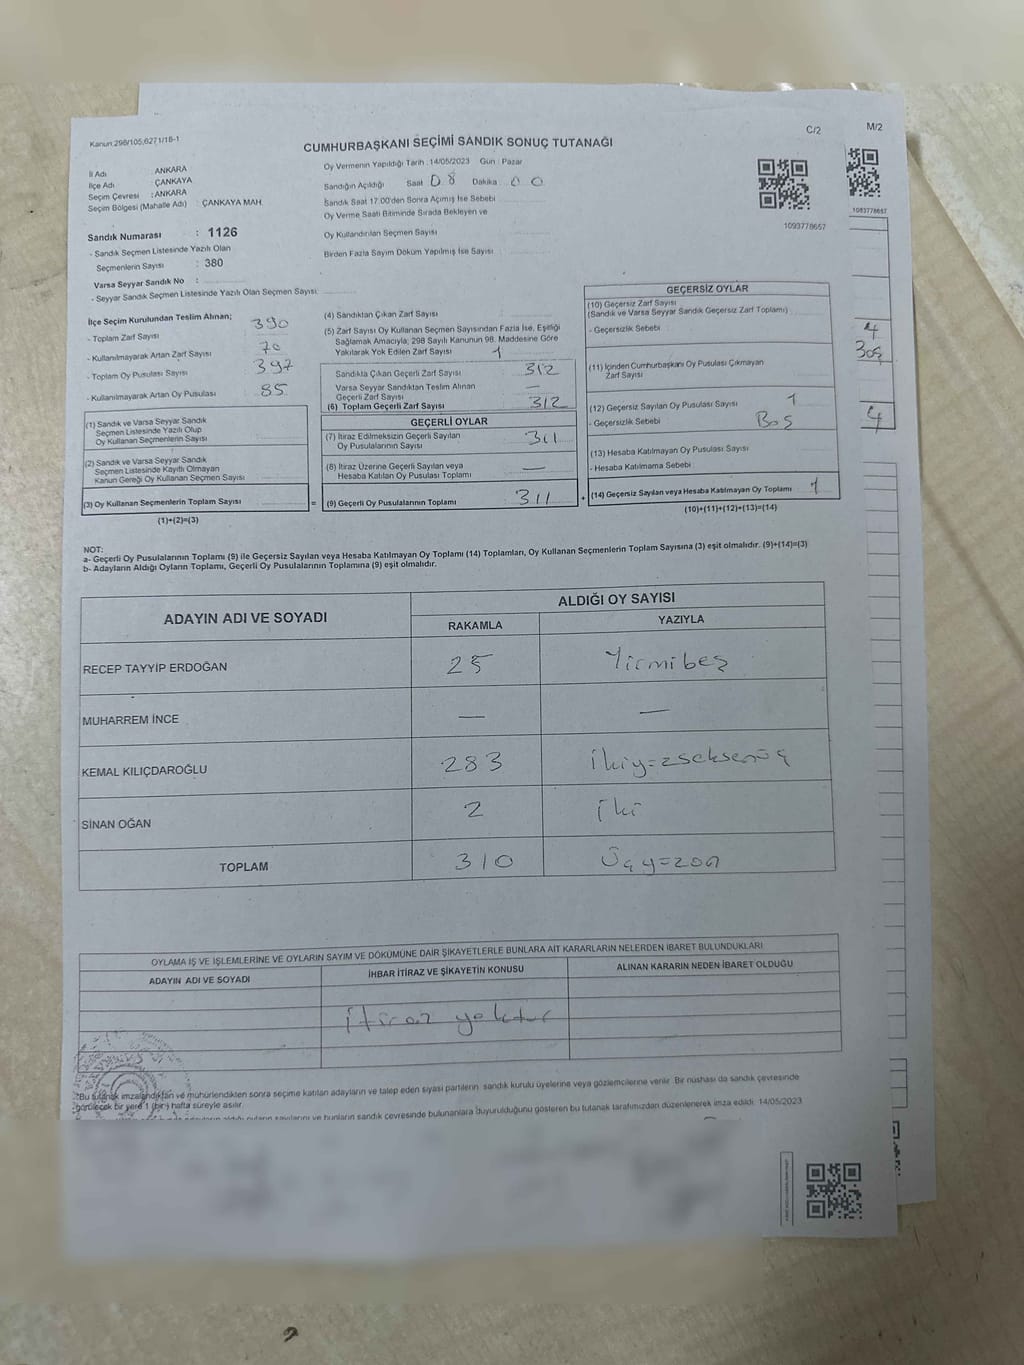 Kanun:298/105;6271/18-1
C/2
M/2
CUMHURBAŞKANI SEÇİMİ SANDIK SONUÇ TUTANAĞI
İl Adı ANKARA
İlçe Adı ÇANKAYA
Seçim Çevresi : ANKARA
Seçim Bölgesi (Mahalle Adı) : ÇANKAYA MAH.
Oy Vermenin Yapıldığı Tarih : 14/05/2023 Gün : Pazar
Sandığın Açıldığı Saat 08 Dakika : 00
Sandık Saat 17.00'den Sonra Açımış İse Sebebi
Oy Verme Saati Bitiminde Sırada Bekleyen ve
Oy Kullandırılan Seçmen Sayısı
Birden Fazla Sayım Döküm Yapılmış İse Sayısı
1093778657
1093778657
Sandık Numarası : 1126
- Sandık Seçmen Listesinde Yazılı Olan
Seçmenlerin Sayısı : 380
Varsa Seyyar Sandık No :
- Seyyar Sandık Seçmen Listesinde Yazılı Olan Seçmen Sayısı:
İlçe Seçim Kurulundan Teslim Alınan;
- Toplam Zarf Sayısı 390
- Kullanılmayarak Artan Zarf Sayısı 70
- Toplam Oy Pusulası Sayısı 397
- Kullanılmayarak Artan Oy Pusulası 85
(1) Sandık ve Varsa Seyyar Sandık
Seçmen Listesinde Yazılı Olup
Oy Kullanan Seçmenlerin Sayısı
(2) Sandık ve Varsa Seyyar Sandık
Seçmen Listesinde Kayıtlı Olmayan
Kanun Gereği Oy Kullanan Seçmen Sayısı
(3) Oy Kullanan Seçmenlerin Toplam Sayısı =
(1)+(2)=(3)
(4) Sandıktan Çıkan Zarf Sayısı
(5) Zarf Sayısı Oy Kullanan Seçmen Sayısından Fazla İse, Eşitliği
Sağlamak Amacıyla; 298 Sayılı Kanunun 98. Maddesine Göre
Yakılarak Yok Edilen Zarf Sayısı 1
Sandıkla Çıkan Geçerli Zarf Sayısı 312
Varsa Seyyar Sandıktan Teslim Alınan
Geçerli Zarf Sayısı —
(6) Toplam Geçerli Zarf Sayısı 312
GEÇERLİ OYLAR
(7) İtiraz Edilmeksizin Geçerli Sayılan
Oy Pusulalarının Sayısı 311
(8) İtiraz Üzerine Geçerli Sayılan veya
Hesaba Katılan Oy Pusulası Toplamı —
(9) Geçerli Oy Pusulalarının Toplamı 311 +
GEÇERSİZ OYLAR
(10) Geçersiz Zarf Sayısı
(Sandık ve Varsa Seyyar Sandık Geçersiz Zarf Toplamı)
- Geçersizlik Sebebi
(11) İçinden Cumhurbaşkanı Oy Pusulası Çıkmayan
Zarf Sayısı
(12) Geçersiz Sayılan Oy Pusulası Sayısı 1
- Geçersizlik Sebebi Boş
(13) Hesaba Katılmayan Oy Pusulası Sayısı
- Hesaba Katılmama Sebebi
(14) Geçersiz Sayılan veya Hesaba Katılmayan Oy Toplamı 1
(10)+(11)+(12)+(13)=(14)
4
Boş
4
NOT:
a- Geçerli Oy Pusulalarının Toplamı (9) ile Geçersiz Sayılan veya Hesaba Katılmayan Oy Toplamı (14) Toplamları, Oy Kullanan Seçmenlerin Toplam Sayısına (3) eşit olmalıdır. (9)+(14)=(3)
b- Adayların Aldığı Oyların Toplamı, Geçerli Oy Pusulalarının Toplamına (9) eşit olmalıdır.
ADAYIN ADI VE SOYADI
ALDIĞI OY SAYISI
RAKAMLA YAZIYLA
RECEP TAYYİP ERDOĞAN 25 Yirmibeş
MUHARREM İNCE — —
KEMAL KILIÇDAROĞLU 283 ikiyüzseksenüç
SİNAN OĞAN 2 iki
TOPLAM 310 Üçyüzon
OYLAMA İŞ VE İŞLEMLERİNE VE OYLARIN SAYIM VE DÖKÜMÜNE DAİR ŞİKAYETLERLE BUNLARA AİT KARARLARIN NELERDEN İBARET BULUNDUKLARI
ADAYIN ADI VE SOYADI İHBAR İTİRAZ VE ŞİKAYETİN KONUSU ALINAN KARARIN NEDEN İBARET OLDUĞU
itiraz yoktur
"Bu tutanak imzalandıktan ve mühürlendikten sonra seçime katılan adayların ve talep eden siyasi partilerin sandık kurulu üyelerine veya gözlemcilerine verilir. Bir nüshası da sandık çevresinde
görülecek bir yere 1 (bir) hafta süreyle asılır.
oyların sayılarını ve bunların sandık çevresinde bulunanlara duyurulduğunu gösteren bu tutanak tarafımızdan düzenlenerek imza edildi. 14/05/2023